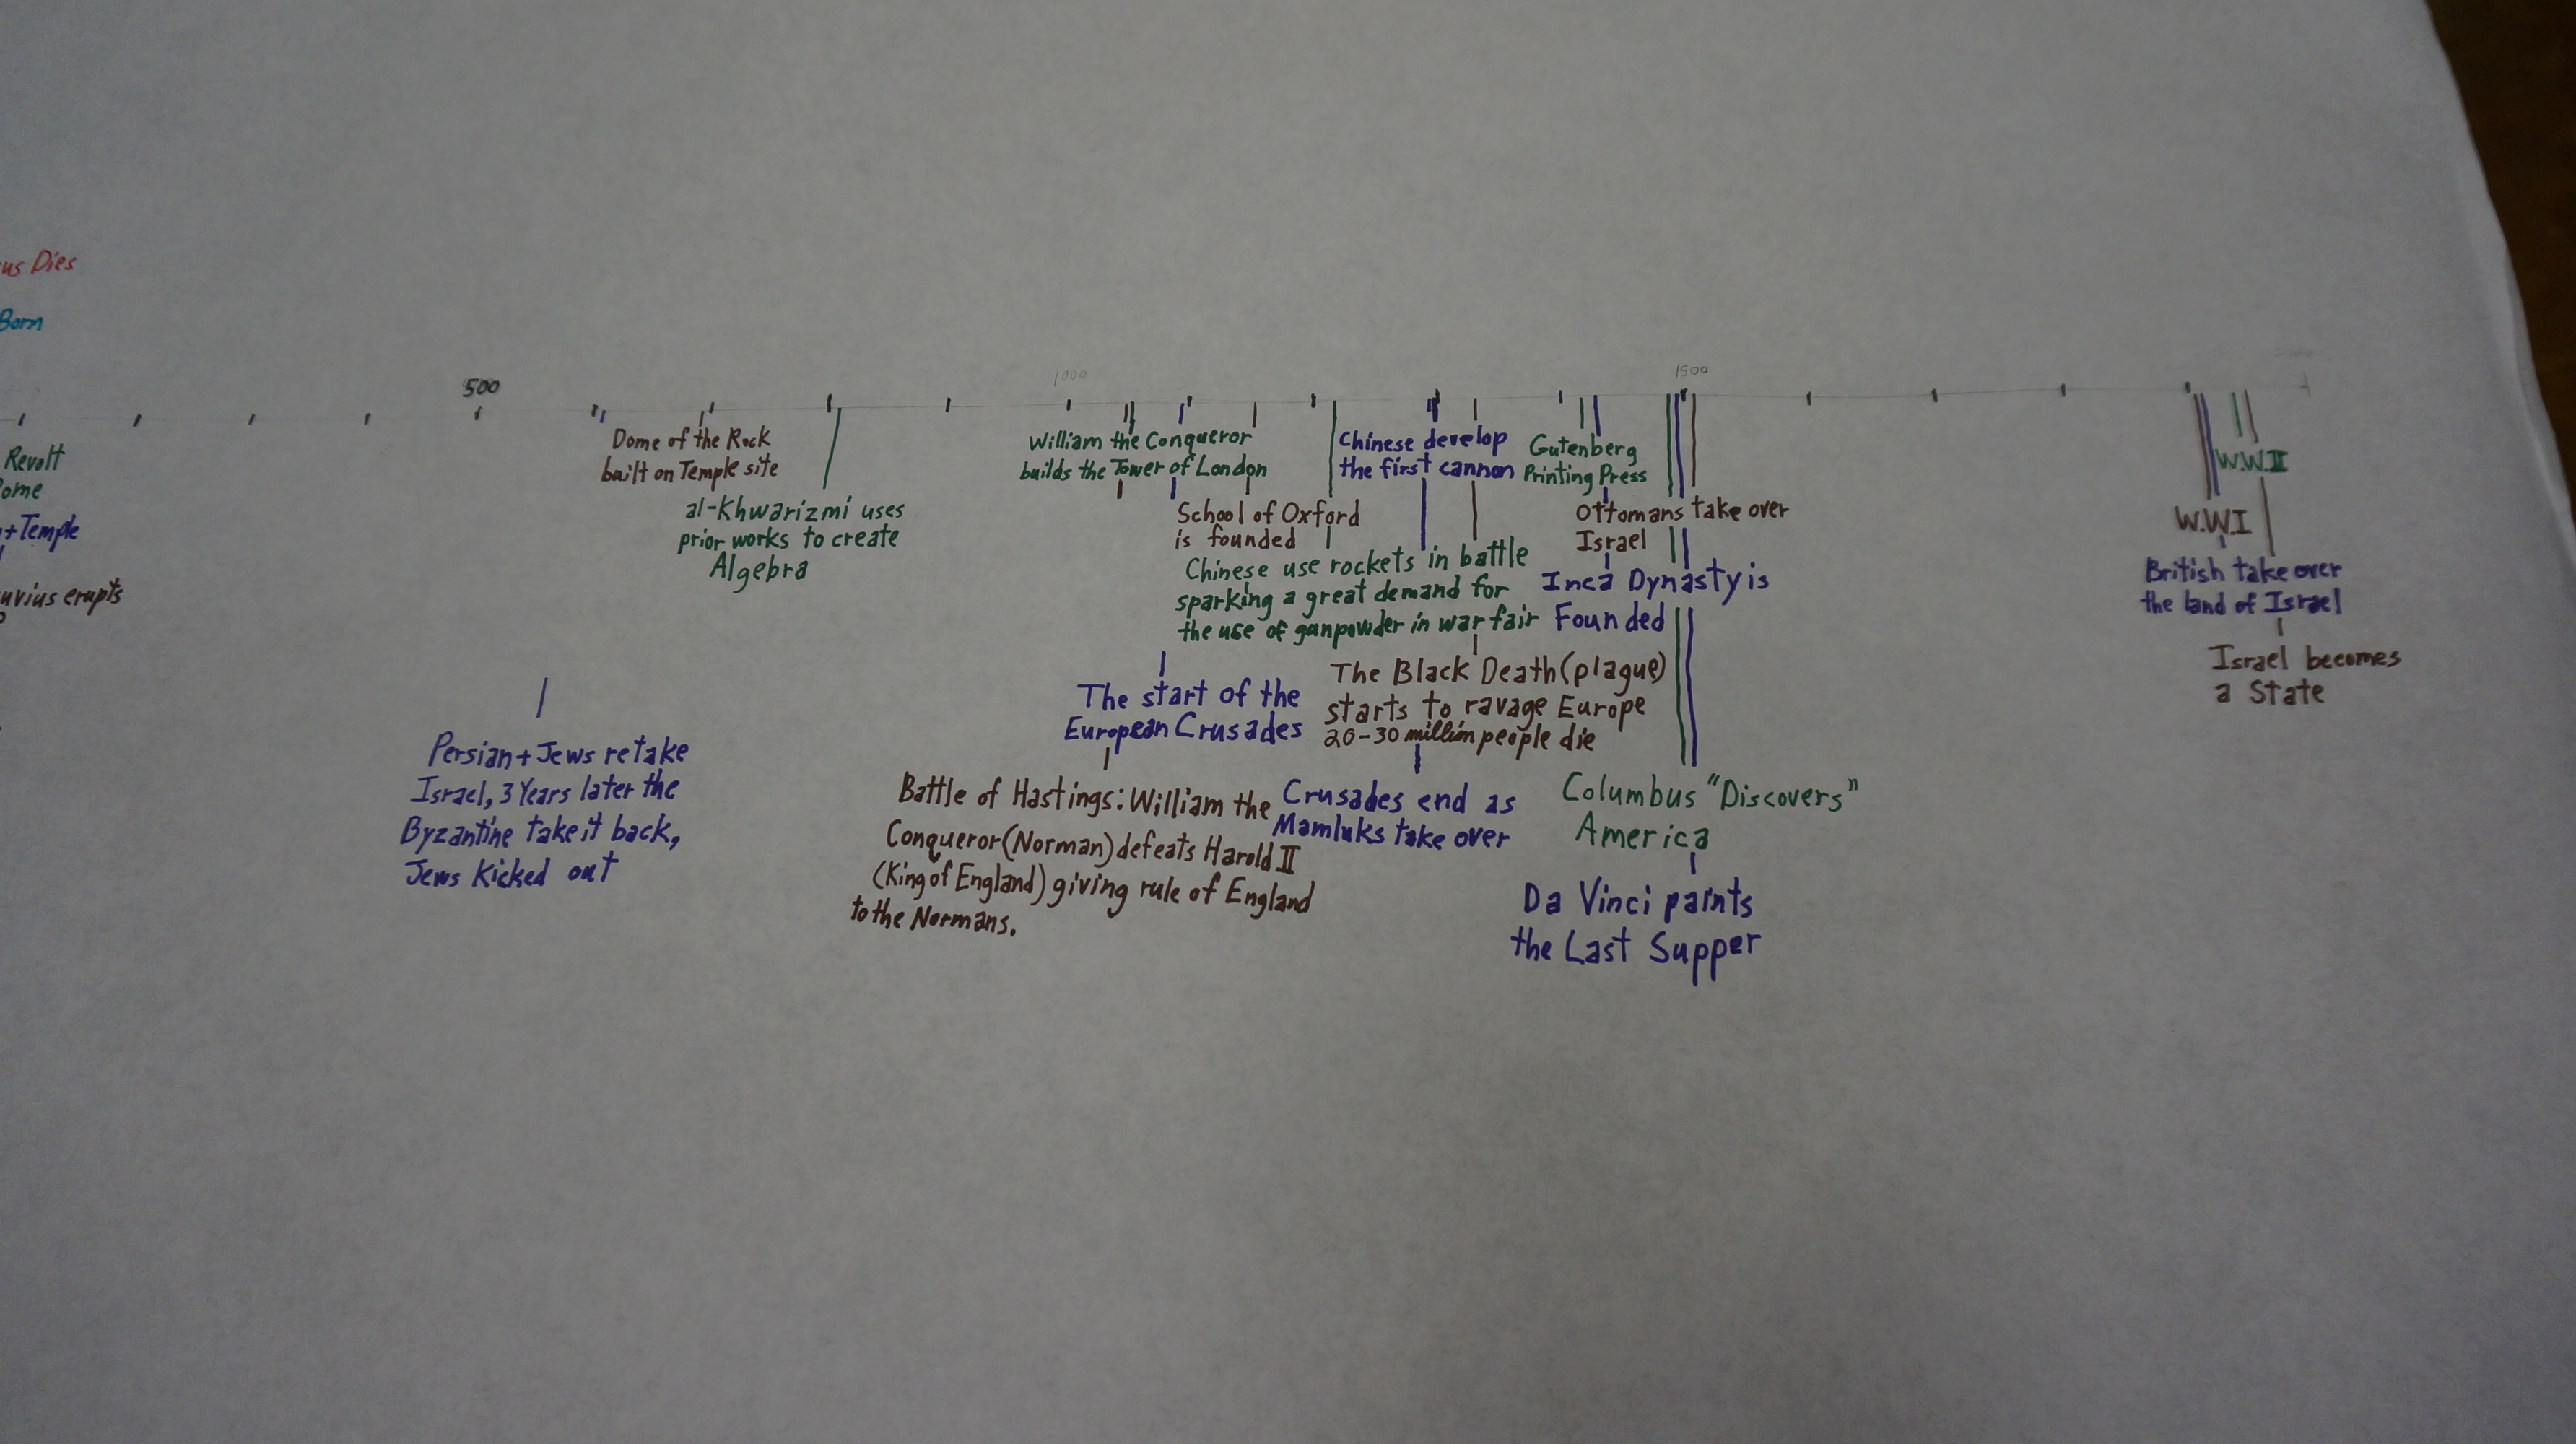 us Dies
Born
500
1000
1500
Revolt
ome
+Temple
uvius erupts
Dome of the Rock
built on Temple site
al-Khwarizmi uses
prior works to create
Algebra
Persian+Jews retake
Israel, 3 Years later the
Byzantine take it back,
Jews Kicked out
William the Conqueror
builds the Tower of London
School of Oxford
is founded
Chinese develop
the first cannon
Chinese use rockets in battle
sparking a great demand for
the use of gunpowder in war fair
The start of the
European Crusades
The Black Death (plague)
starts to ravage Europe
20-30 million people die
Battle of Hastings: William the
Conqueror (Norman) defeats Harold II
(King of England) giving rule of England
to the Normans.
Crusades end as
Mamluks take over
Gutenberg
Printing Press
Ottomans take over
Israel
Inca Dynasty is
Founded
Columbus "Discovers"
America
Da Vinci paints
the Last Supper
W.W.II
W.W.I
British take over
the land of Israel
Israel becomes
a State